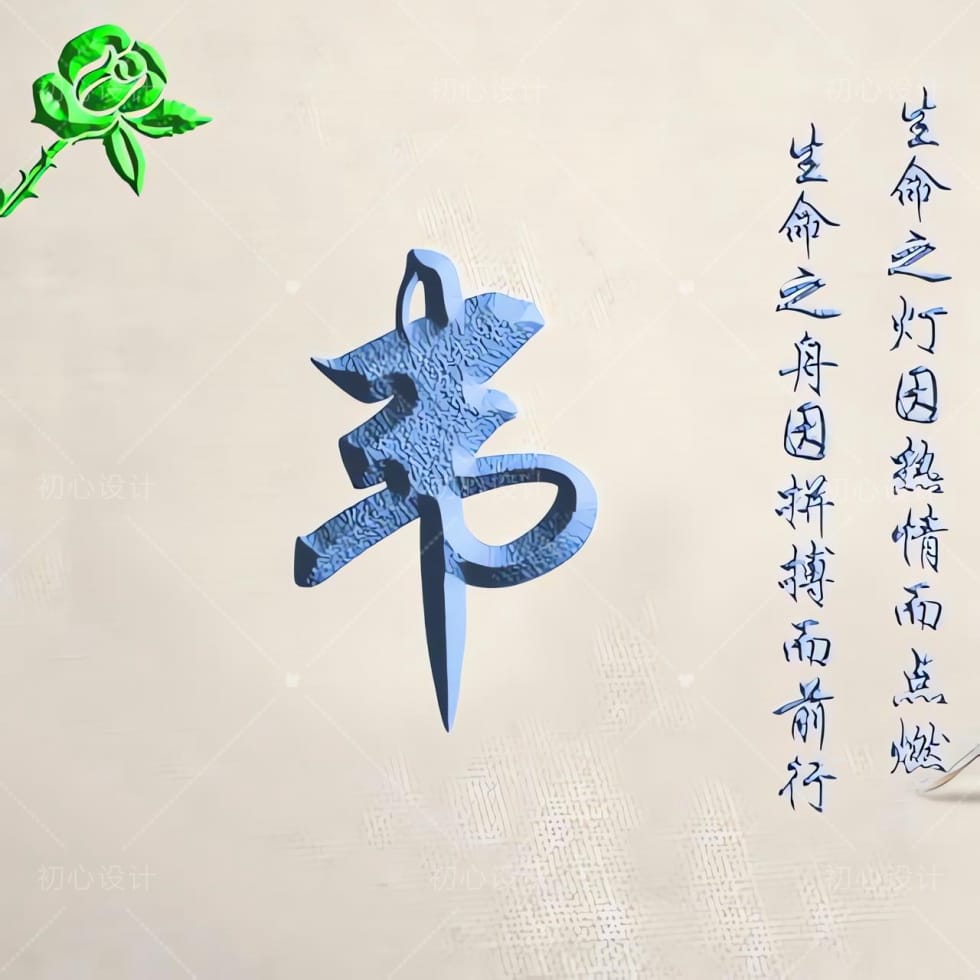 韦
生命之灯因热情而点燃
生命之舟因拼搏而前行
初心设计
初心设计
初心设计
初心设计
初心设计
初心设计
初心设计
初心设计